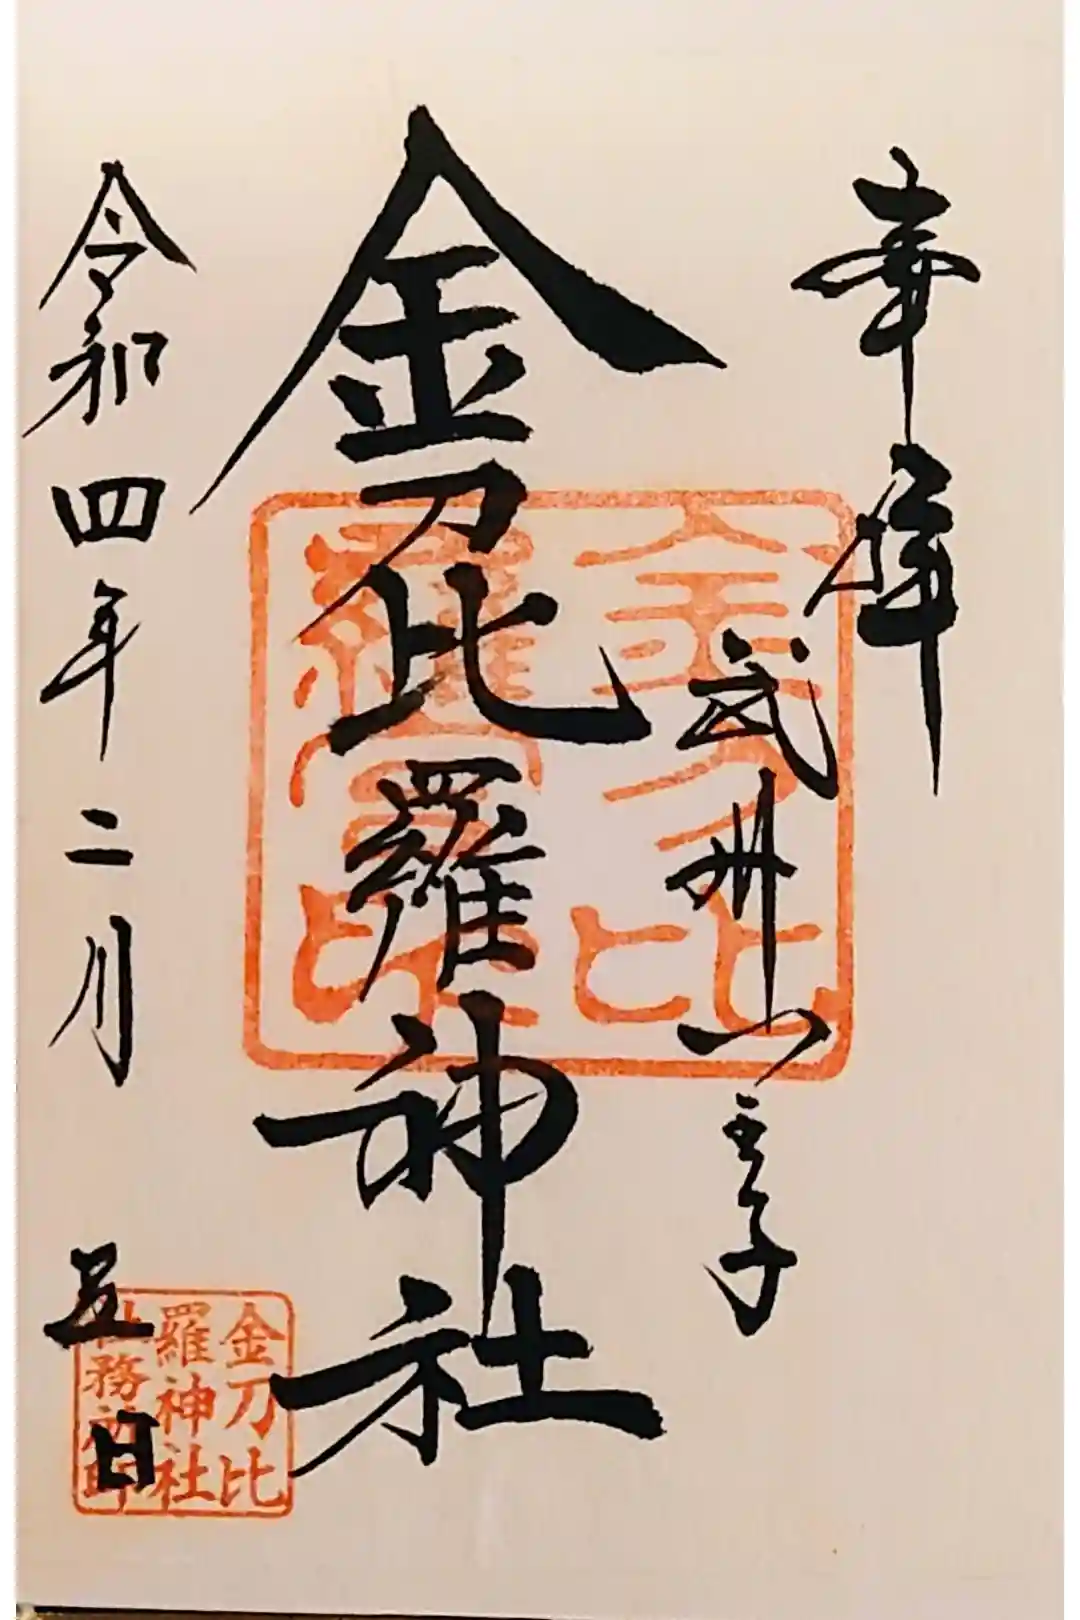 奉拝
武州八王子
金刀比羅神社
令和四年二月五日
金刀比
羅神社
社務所印
金刀比
羅宮印